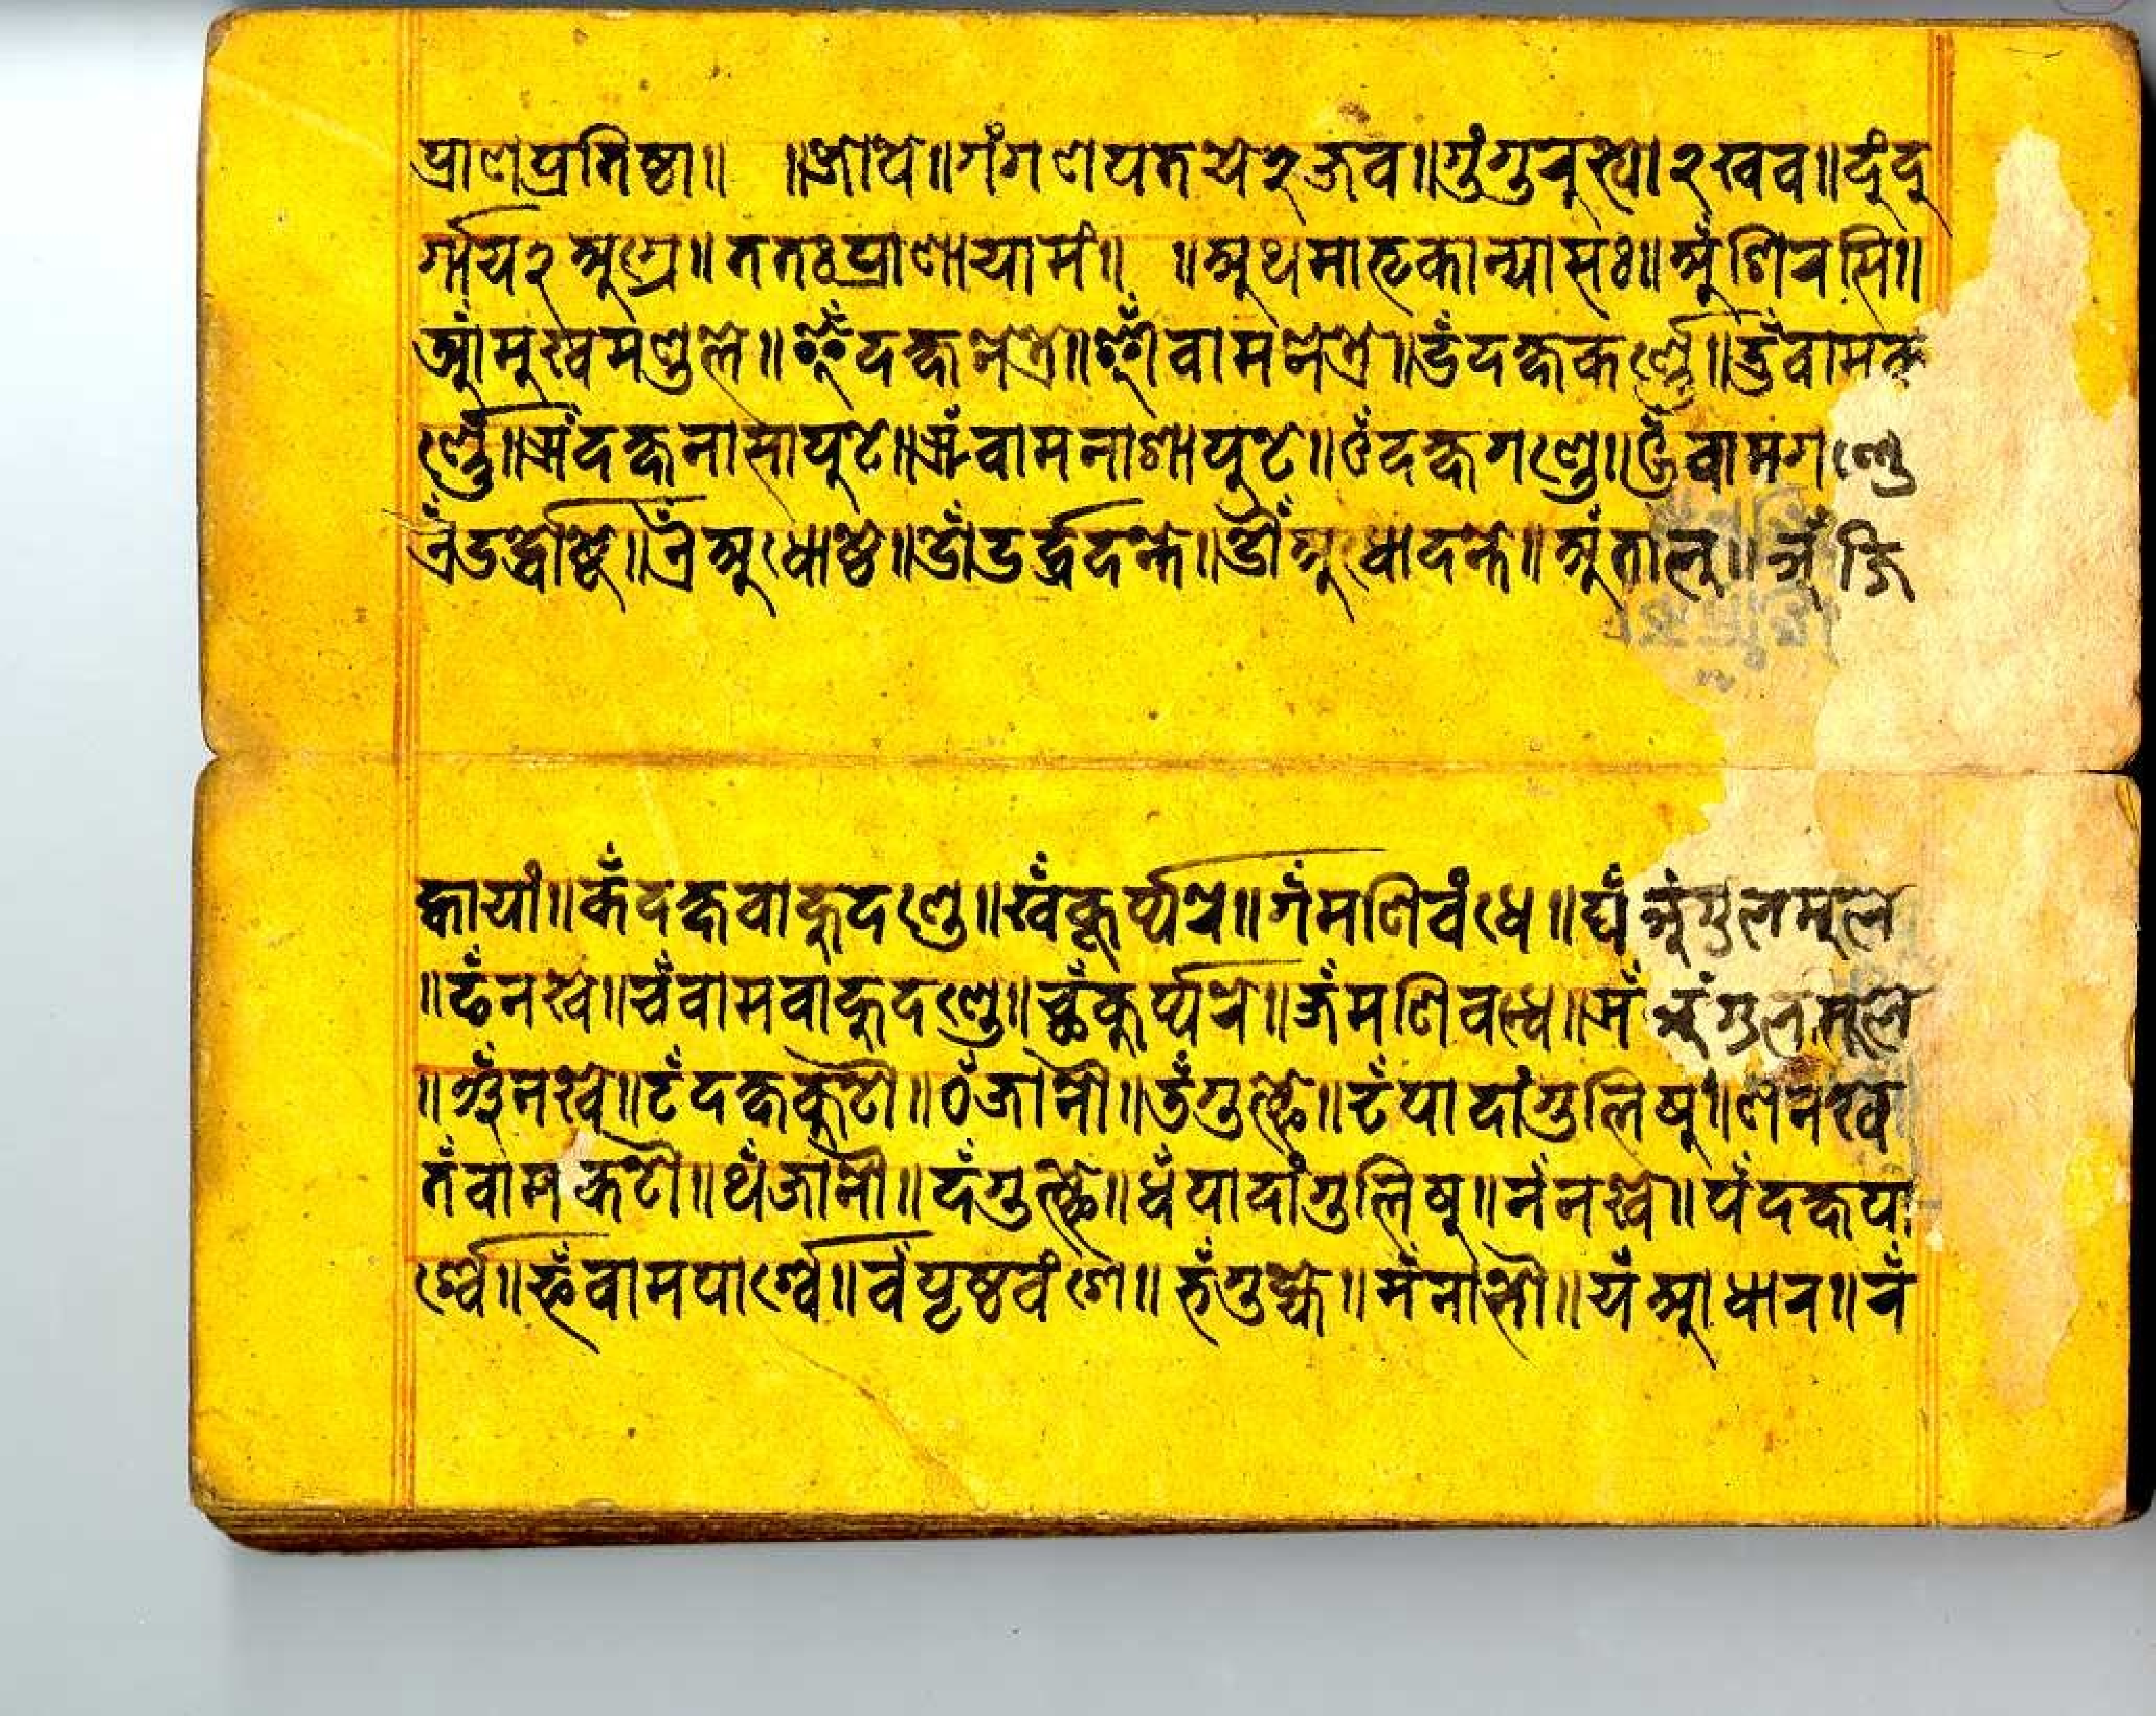 प्राणप्रतिष्ठा॥ ॥जोषे॥गंगणपतये२जव॥गुंगुरुभ्यो२खव॥दुंदु
र्गायै२अग्रे॥ततःप्राणायामं॥ ॥अथमातृकान्यासः॥अँशिरसि॥
आँमुखमण्डले॥इँदक्षनेत्रे॥ईँवामनेत्रे॥उँदक्षकर्ण्णे॥ऊँवामक
र्ण्णे॥ऋँदक्षनासापुटे॥ॠँवामनाशापुटे॥ऌँदक्षगण्डे॥ॡँवामगण्डे
एँउर्द्धोष्ठे॥ऐँअधोष्ठे॥ओँउर्द्धदन्ते॥औँअधोदन्ते॥अंतालु॥अँजि
ह्वायां॥कँदक्षवाहुदण्डे॥खँकूर्प्परे॥गँमणिवंधे॥घँअंगुलमूले
॥ङँनखे॥चँवामवाहुदण्डे॥छँकुर्प्परे॥जँमणिवन्धे॥झँअंगुलमूले
॥ञँनखे॥टँदक्षकटौ॥ठँजानौ॥डँगुल्फे॥ढँपादांगुलिषु॥णनखे
तँवामकटौ॥थँजानौ॥दँगुल्फे॥धँपादांगुलिषु॥नँनखे॥पँदक्षपा
र्श्वे॥फँवामपार्श्वे॥वँपृष्ठवंशे॥भँगुह्ये॥मँनाभौ॥यँआधार॥रँ